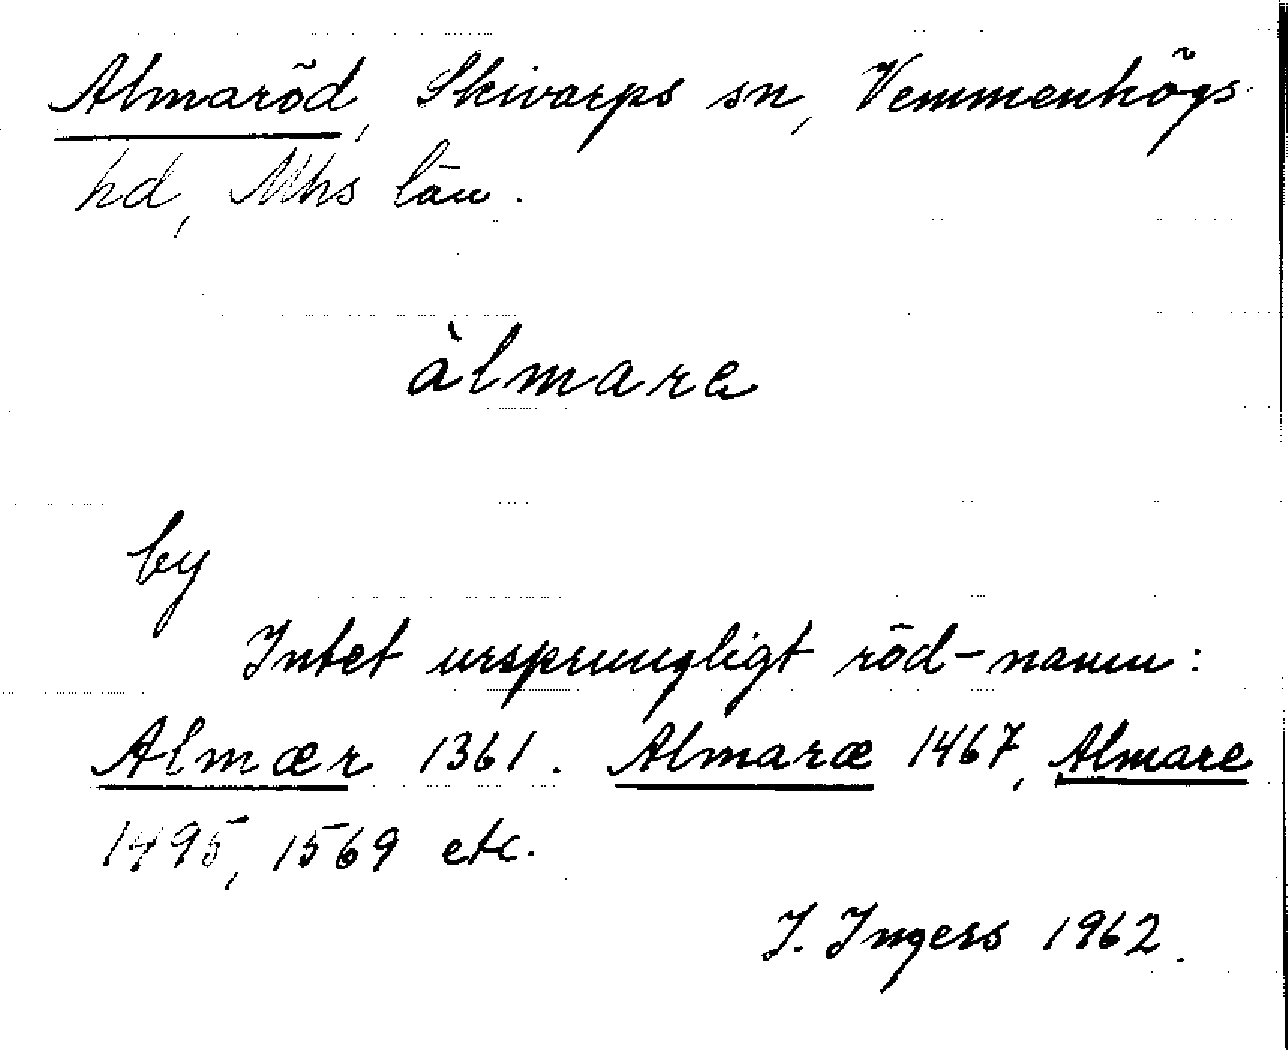 Almaröd, Skivarps sn, Vemmenhögs
hd, Mhs län.
àlmara
by
Intet ursprungligt röd-namn:
Almær 1361. Almaræ 1467, Almare
1495, 1569 etc.
I. Ingers 1962.